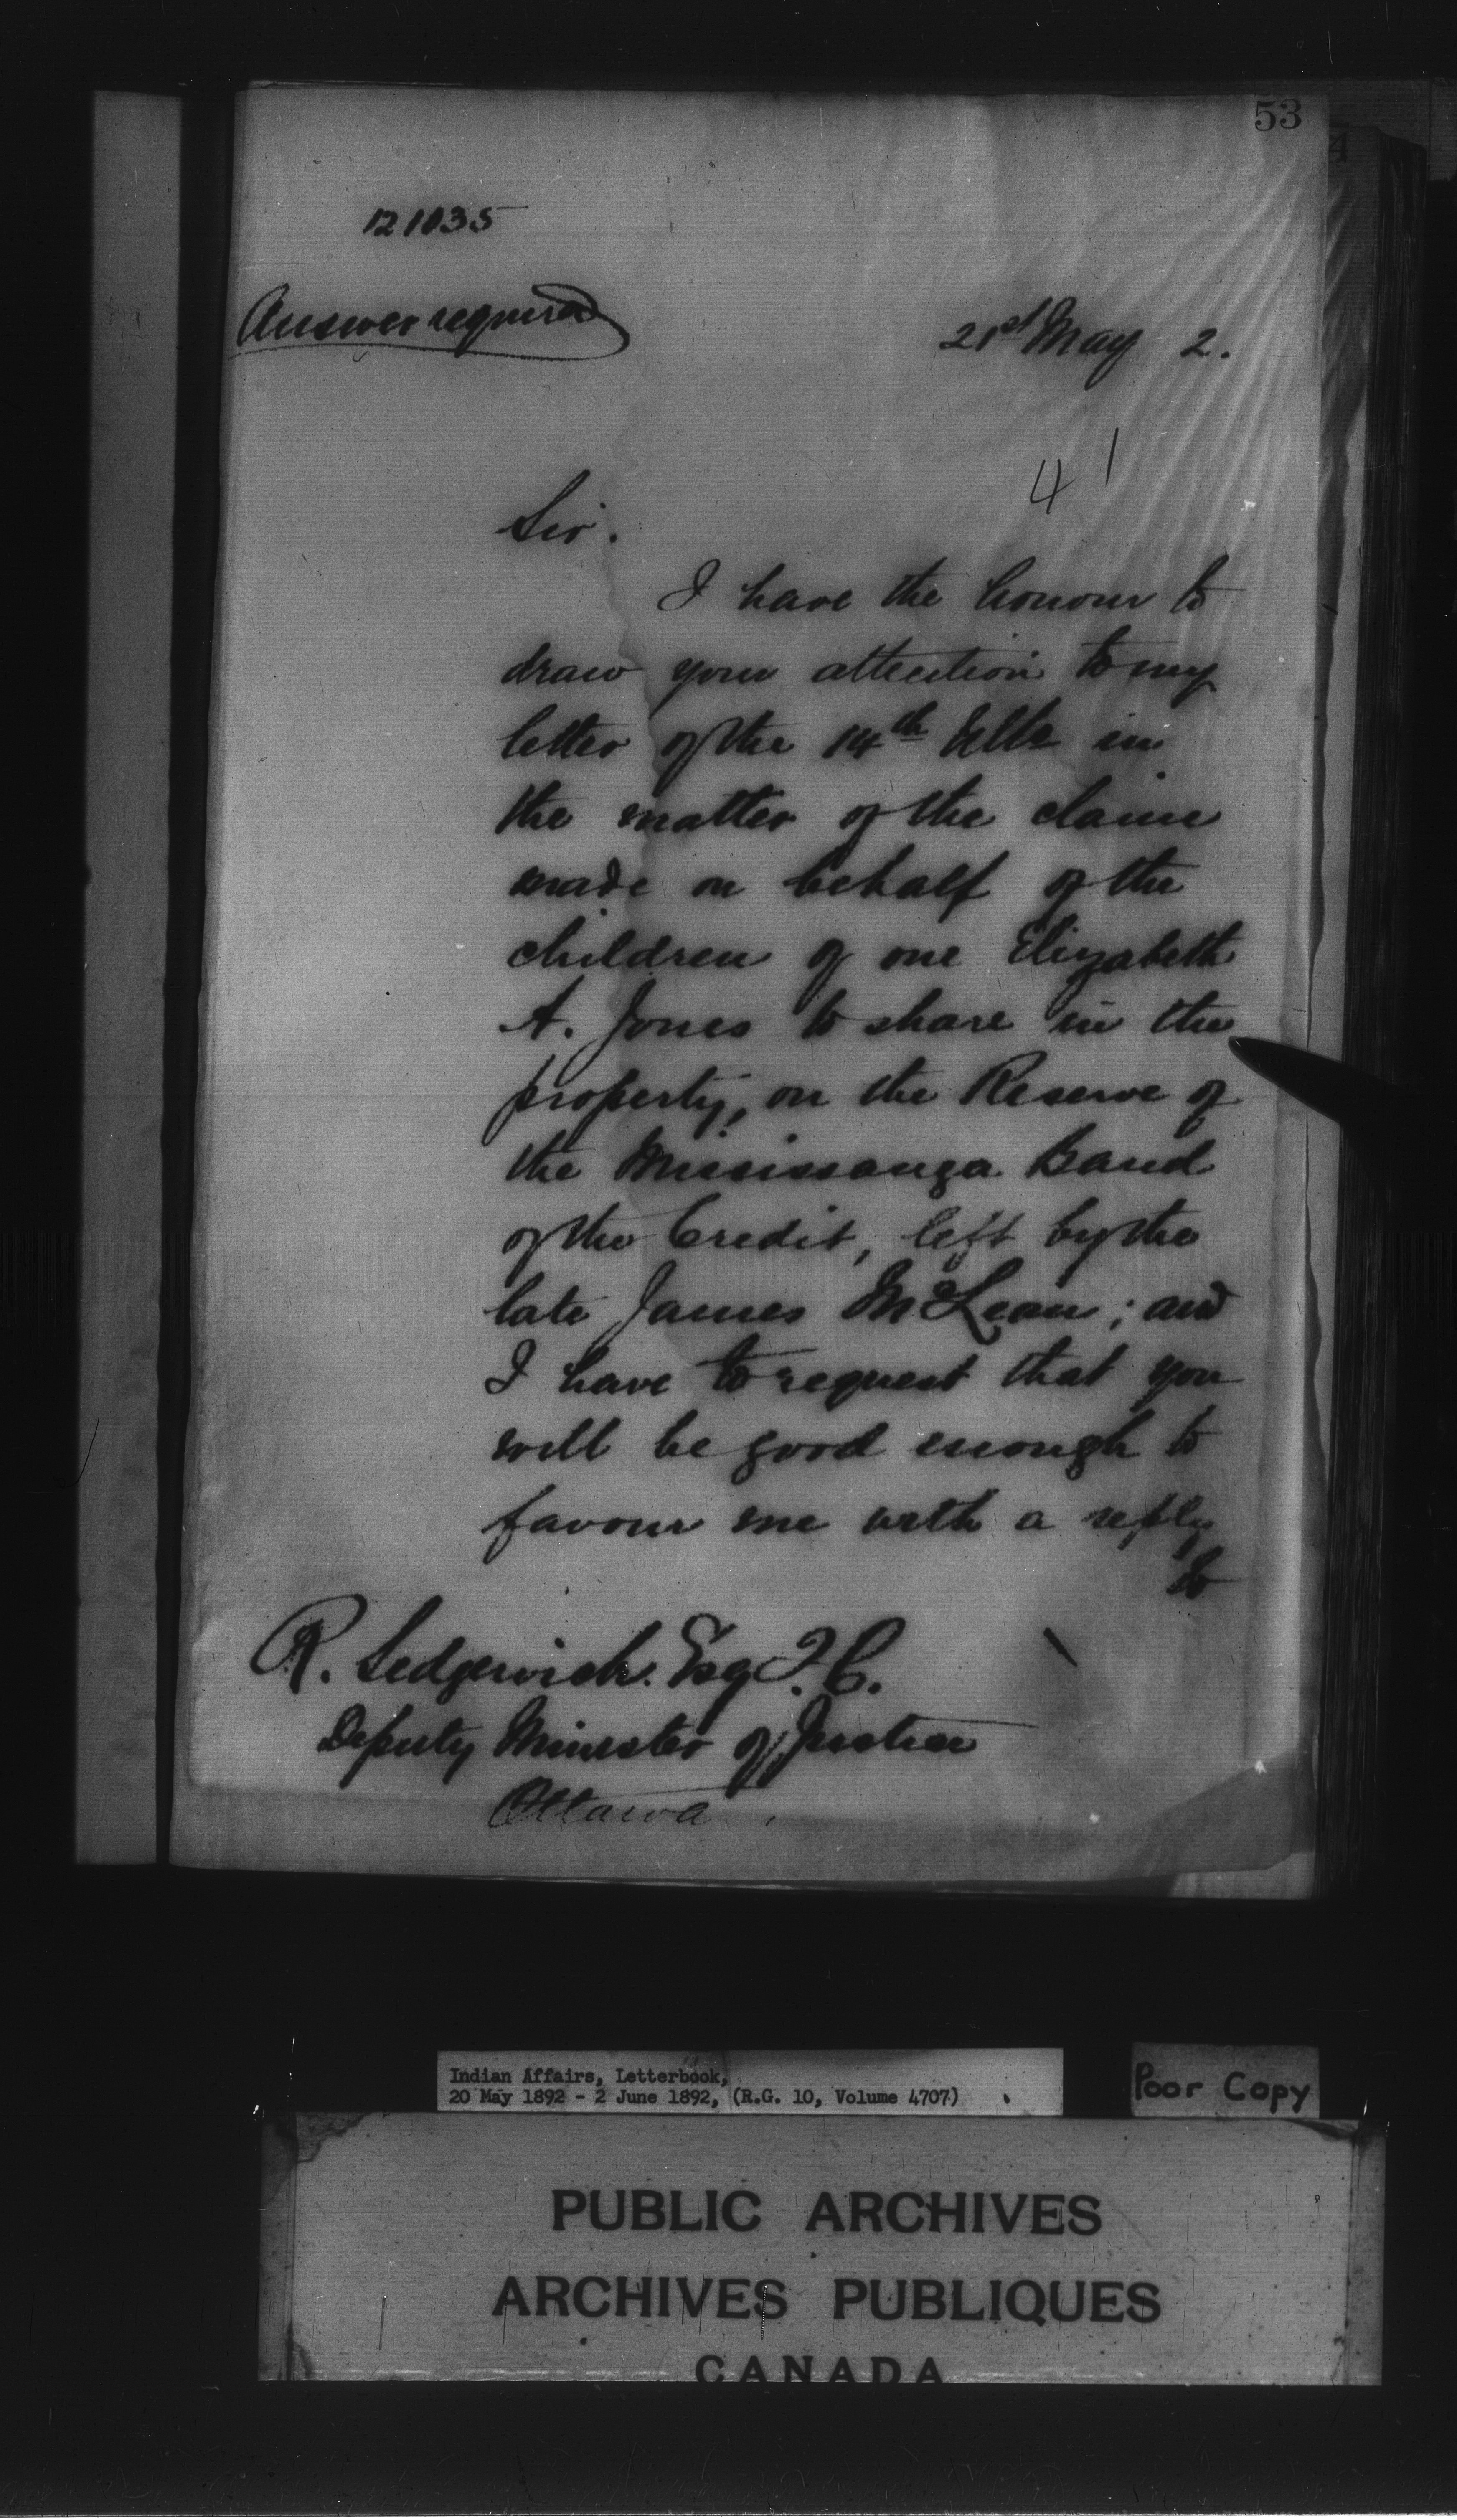 53
121035
Answer required
21st May 2.
41
Sir.
I have the honour to
draw your attention to my
letter of the 14th Ulto in
the matter of the claim
made on behalf of the
children of one Elizabeth
A. Jones to share in the
property, on the Reserve of
the Mississauga Band
of the Credit, left by the
late James McLean; and
I have to request that you
will be good enough to
favour me with a reply
to
R. Sedgewick. Esq Q.C.
Deputy Minister of Justice
Ottawa.
Indian Affairs, Letterbook,
20 May 1892 - 2 June 1892, (R.G. 10, Volume 4707)
Poor Copy
PUBLIC ARCHIVES
ARCHIVES PUBLIQUES
CANADA